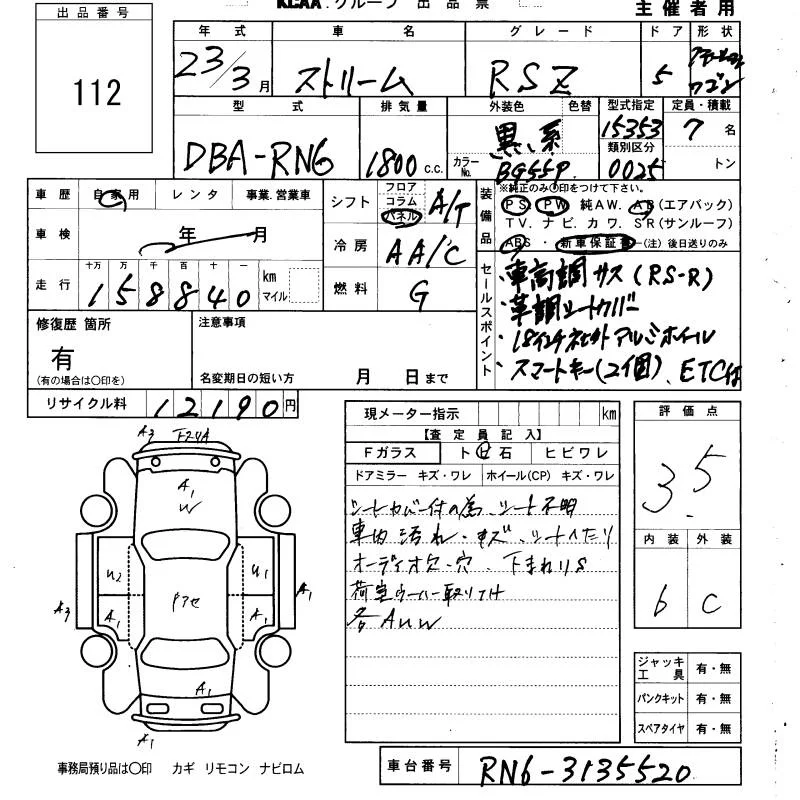 KCAA.グループ 出品票
主催者用
出品番号
112
年式 車名 グレード ドア 形状
23/3月 ストリーム RSZ 5 ワゴン
型式 排気量 外装色 色替 型式指定 定員・積載
DBA-RN6 1800c.c. 黒系 15353 7名
カラーNo. BG55P 類別区分 0025 トン
車歴 自家用 レンタ 事業.営業車
シフト フロア コラム パネル A/T
装備品
※純正のみ○印をつけて下さい。
PS. PW 純AW. AB(エアバック)
TV. ナビ. カワ. SR(サンルーフ)
ABS ・ 新車保証書 ―(注) 後日送りのみ
車検 年 月
冷房 AA/C
走行 十万 万 千 百 十 一
158840 km マイル
燃料 G
セールスポイント
・車高調サス(RS-R)
・革調シートカバー
・18インチ社外アルミホイール
・スマートキー(2個)、ETC付
修復歴 箇所
有
(有の場合は○印を)
注意事項
名変期日の短い方 月 日まで
リサイクル料 12190円
現メーター指示 km
【査定員記入】
Fガラス ト石 ヒビワレ
ドアミラー キズ・ワレ ホイール(CP) キズ・ワレ
シートカバー付の為、シート不明
車内汚れ・キズ シートヘたり
オーディオ欠・穴 下まわりS
荷室ウーハー取り付
各AUW
評価点
3.5
内装 外装
b C
A3
A1
W
U2 U1
A3 A1 A1 A1
A1
A1
ジャッキ 工具 有・無
パンクキット 有・無
スペアタイヤ 有・無
事務局預り品は○印 カギ リモコン ナビロム
車台番号 RN6-3135520